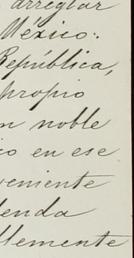 arreglar
México:
República,
propio
n noble
o en ese
veniente
enda
lemente